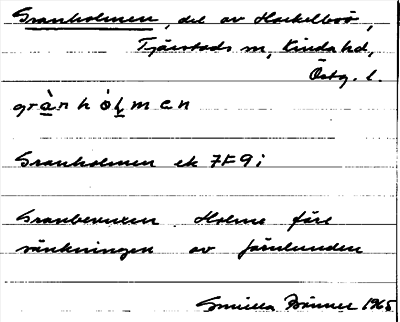 Granholmen, del av Hackelboö,
Tjärstads sn, Kinda hd,
Östg. l.
grànhòlmen
Granholmen ek 7F9i
Granbevuxen Holme före
sänkningen av Järnlunden
Gunilla Brånner 1965